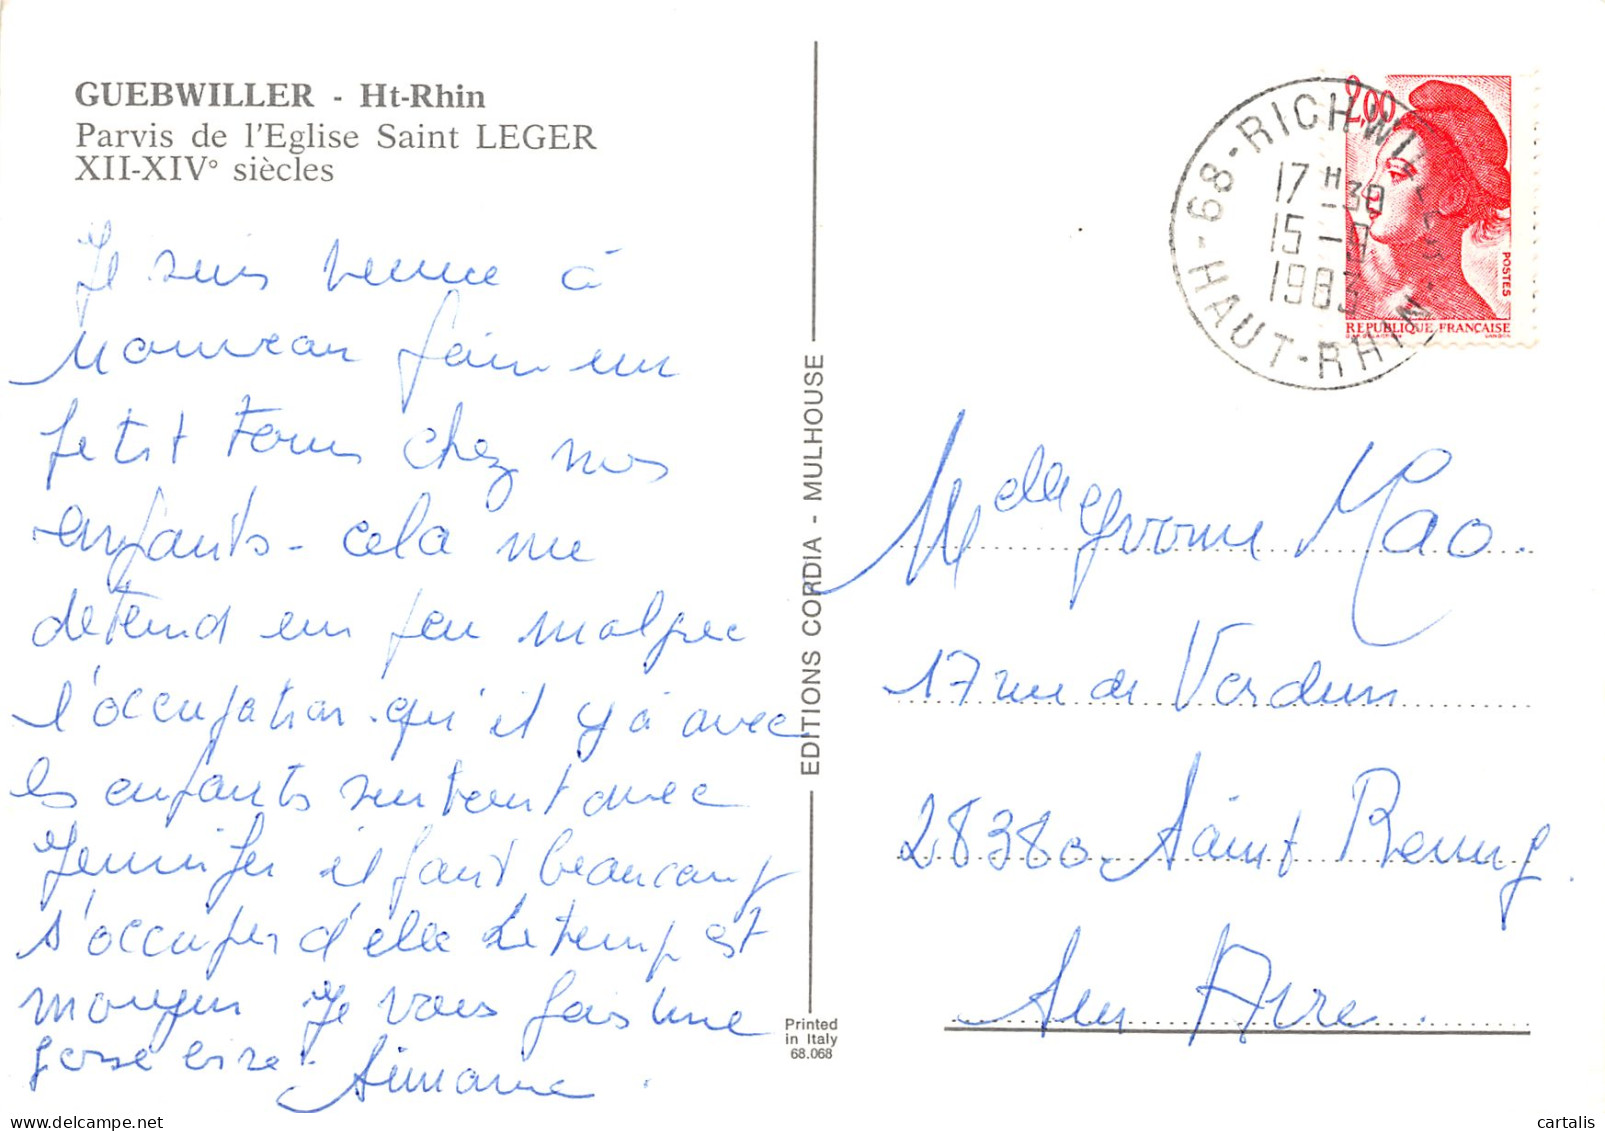 GUEBWILLER - Ht-Rhin
Parvis de l'Eglise Saint LEGER
XII-XIV° siècles
Je suis venue à
nouveau faire un
petit tour chez nos
enfants - cela me
detend un peu malgré
l'occupation qu'il y a avec
les enfants surtout avec
Jennifer il faut beaucoup
s'occuper d'elle Le temp est
moyen Je vous fais une
grosse bise - Simone.
EDITIONS CORDIA - MULHOUSE
Printed
in Italy
68.068
68-RICHWILLER
17 H 30
15 -
1983
HAUT-RHIN
2,00
POSTES
REPUBLIQUE FRANÇAISE
Melle Yvonne Mao.
17 rue de Verdun
28380 Saint Remy
Sur Avre.
cartalis
delcampe.net